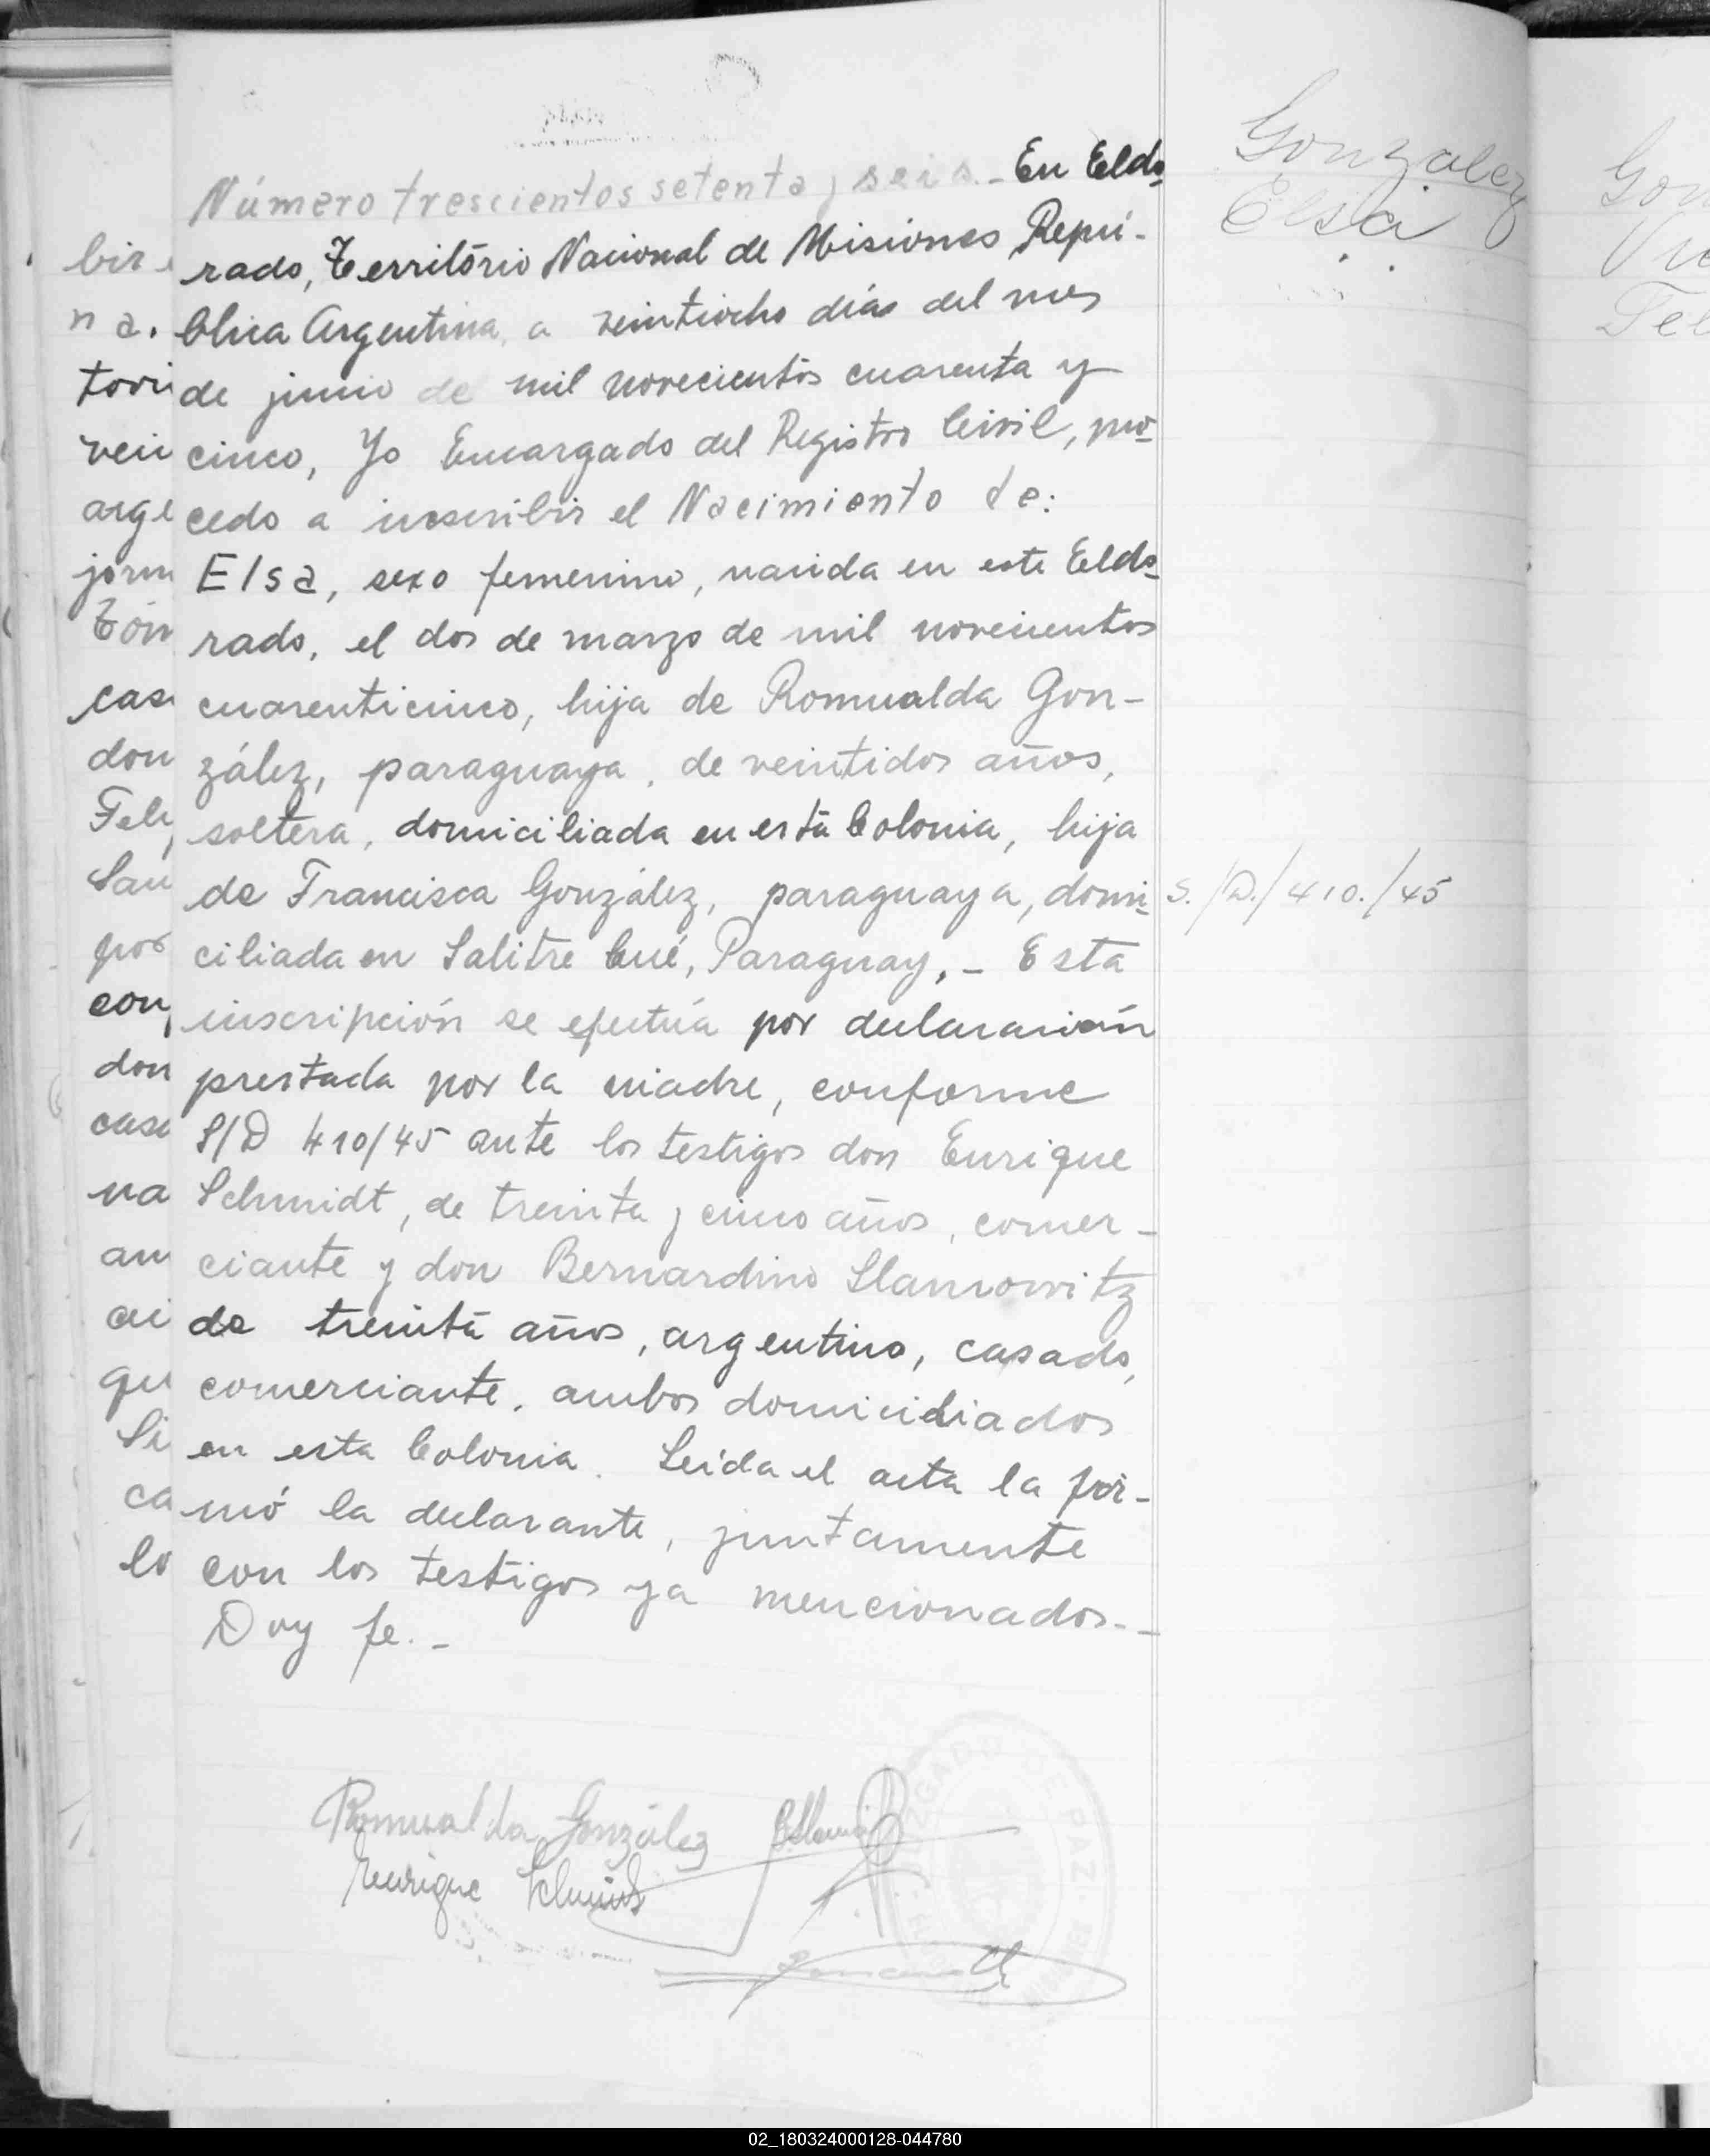 Número trescientos setenta y seis.- En Eldo-
rado, Território Nacional de Misiones Repú-
blica Argentina, a veintiocho días del mes
de junio de mil novecientos cuarenta y
cinco, Yo Encargado del Registro Civil, pro-
cedo a inscribir el Nacimiento de:
Elsa, sexo femenino, nacida en este Eldo-
rado, el dos de marzo de mil novecientos
cuarenticinco, hija de Romualda Gon-
zález, paraguaya, de veintidos años,
soltera, domiciliada en esta Colonia, hija
de Francisca González, paraguaya, domi-
ciliada en Salitre Cué, Paraguay.- Esta
inscripción se efectúa por declaración
prestada por la madre, conforme
S/D 410/45 ante los testigos don Enrique
Schmidt, de treinta y cinco años, comer-
ciante y don Bernardino Slamovitz
de treinta años, argentino, casado,
comerciante, ambos domiciliados
en esta Colonia. Leída el acta la fir-
mó la declarante, juntamente
con los testigos ya mencionados.-
Doy fe.-
Romualda González
Enrique Schmidt
JUZGADO DE PAZ
González
Elsa
S./D./410./45
bir
na.
torri
vein
arge
jorn
cas
don
Feli
San
por
con
don
case
na
an
ci
qu
Si
ca
lo
Gon
02_180324000128-044780